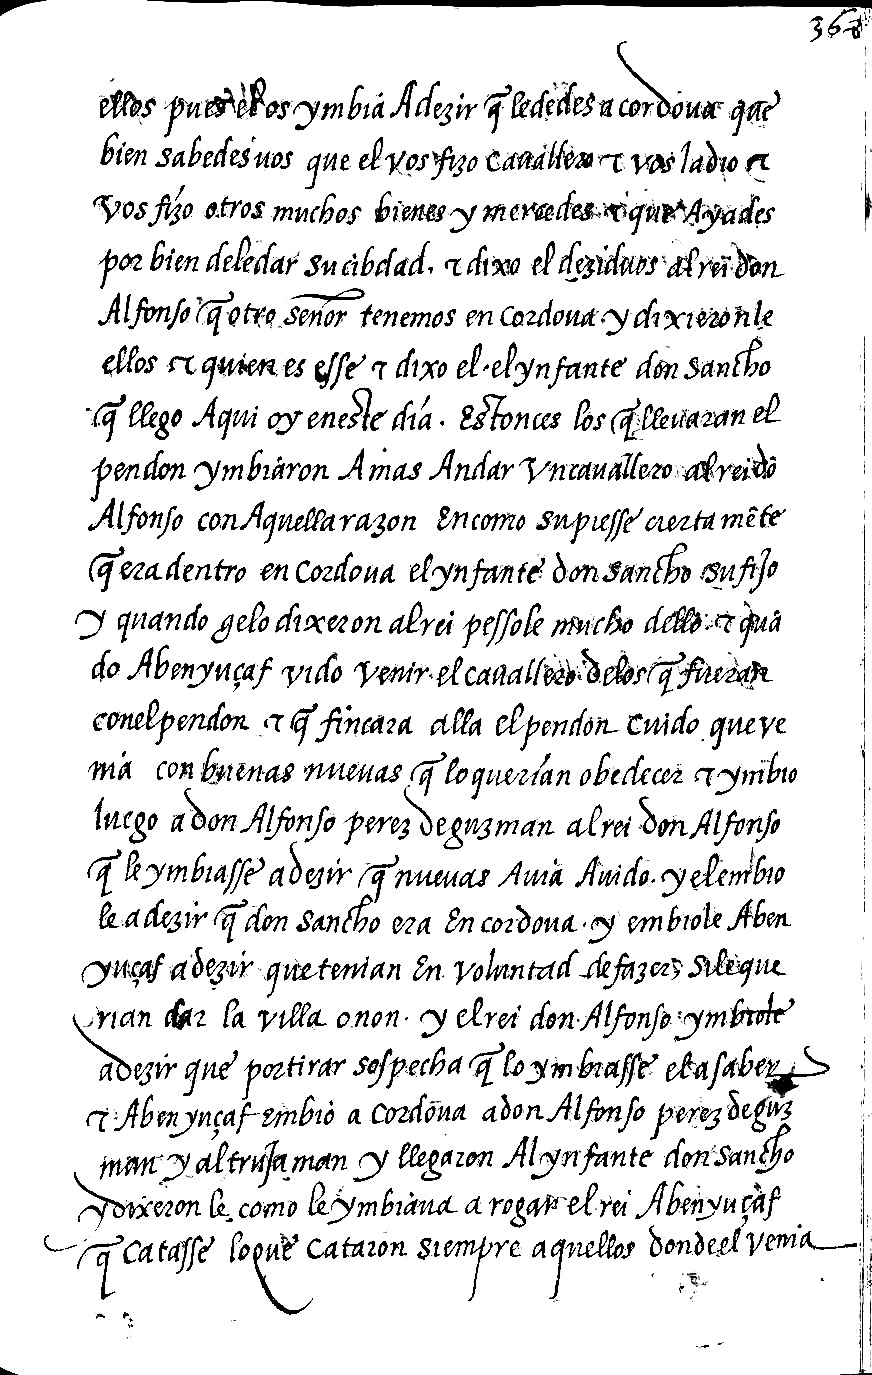 368
ellos pues el os ymbia Adezir q̃ lededes acordoua que
bien sabedes uos que el vos fizo cauallero τ vos la dio τ
vos fizo otros muchos bienes y mercedes τ que Ayades
por bien deledar su cibdad. τ dixo el deziduos al rei don
Alfonso q̃ otro señor tenemos en cordoua. y dixieronle
ellos τ quien es esse τ dixo el. el ynfante don sancho
q̃ llego Aqui oy eneste día. Estonces los q̃ lleuaran el
pendon ymbiaron A mas Andar vn cauallero al rei dõ
Alfonso con Aquella razon En como supiesse ciertamẽte
q̃ era dentro en cordoua el ynfante don sancho su fijo
y quando gelo dixeron al rei pessole mucho dello. τ quã
do Abenyuçaf vido venir el cauallero delos q̃ fueran
conel pendon τ q̃ fincara alla el pendon cuido que ve
nia con buenas nueuas q̃ lo querían obedecer τ ymbio
luego a don Alfonso perez de guzman al rei don Alfonso
q̃ le ymbiasse adezir q̃ nueuas Auia Auido. y el embio
le adezir q̃ don sancho era En cordoua. y embiole Aben
yuçaf adezir que tenian En voluntad de fazer, si le que
rian dar la villa o non. y el rei don Alfonso ymbiole
adezir que por tirar sospecha q̃ lo ymbiasse el a saber
τ Abenyuçaf Embiò a cordoua a don Alfonso perez de guz
man y al trujaman y llegaron Al ynfante don sancho
y dixeron le como le ymbiaua a rogar el rei Abenyuçaf
q̃ Catasse lo que cataron siempre aquellos donde el venia